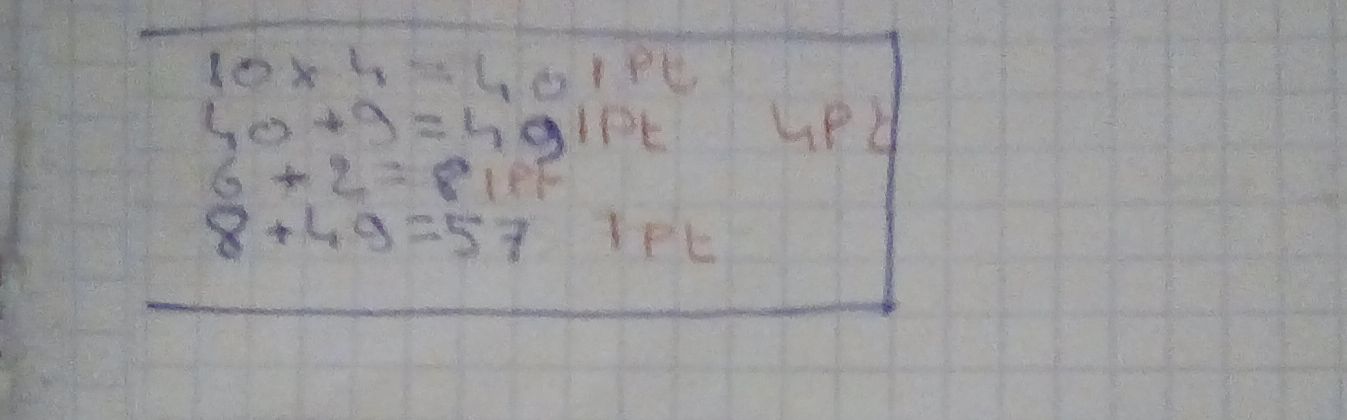 10 x 4 = 40 1 Pt
40 + 9 = 49 1Pt 4Pt
6 + 2 = 8 1Pt
8 + 49 = 57 1 Pt